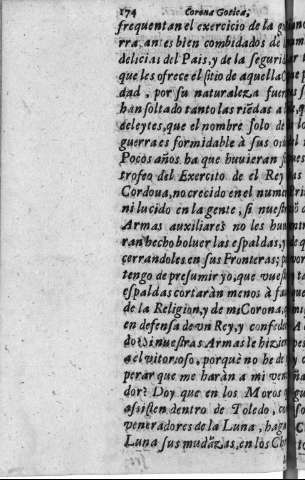 174 Corona Gotica,
frequentan el exercicio de la gue
rra, antes bien combidados de l
delicias del Pais, y de la segurid
que les ofrece el sitio de aquella C
dad, por su naturaleza fuer
han soltado tanto las riẽdas a l
deleytes, que el nombre solo de
guerra es formidable à sus o
Pocos años ha que huuieran s
trofeo del Exercito de el Rey
Cordoua, no crecido en el nume
ni lucido en la gente, si nuest
Armas auxiliares no les hu
ran hecho boluer las espaldas, y
cerrandoles en sus Fronteras; p
tengo de presumir yo, que vuest
espaldas cortaràn menos à f
de la Religion, y de mi Corona,
en defensa de vn Rey, y confede
do? Si nuestras Armas le hizie
el vitorioso, porquè no he de
perar que me haràn a mi ven
dor? Doy que en los Moros
assisten dentro de Toledo, co
veneradores de la Luna, hag
Luna sus mudãças, en los Ch